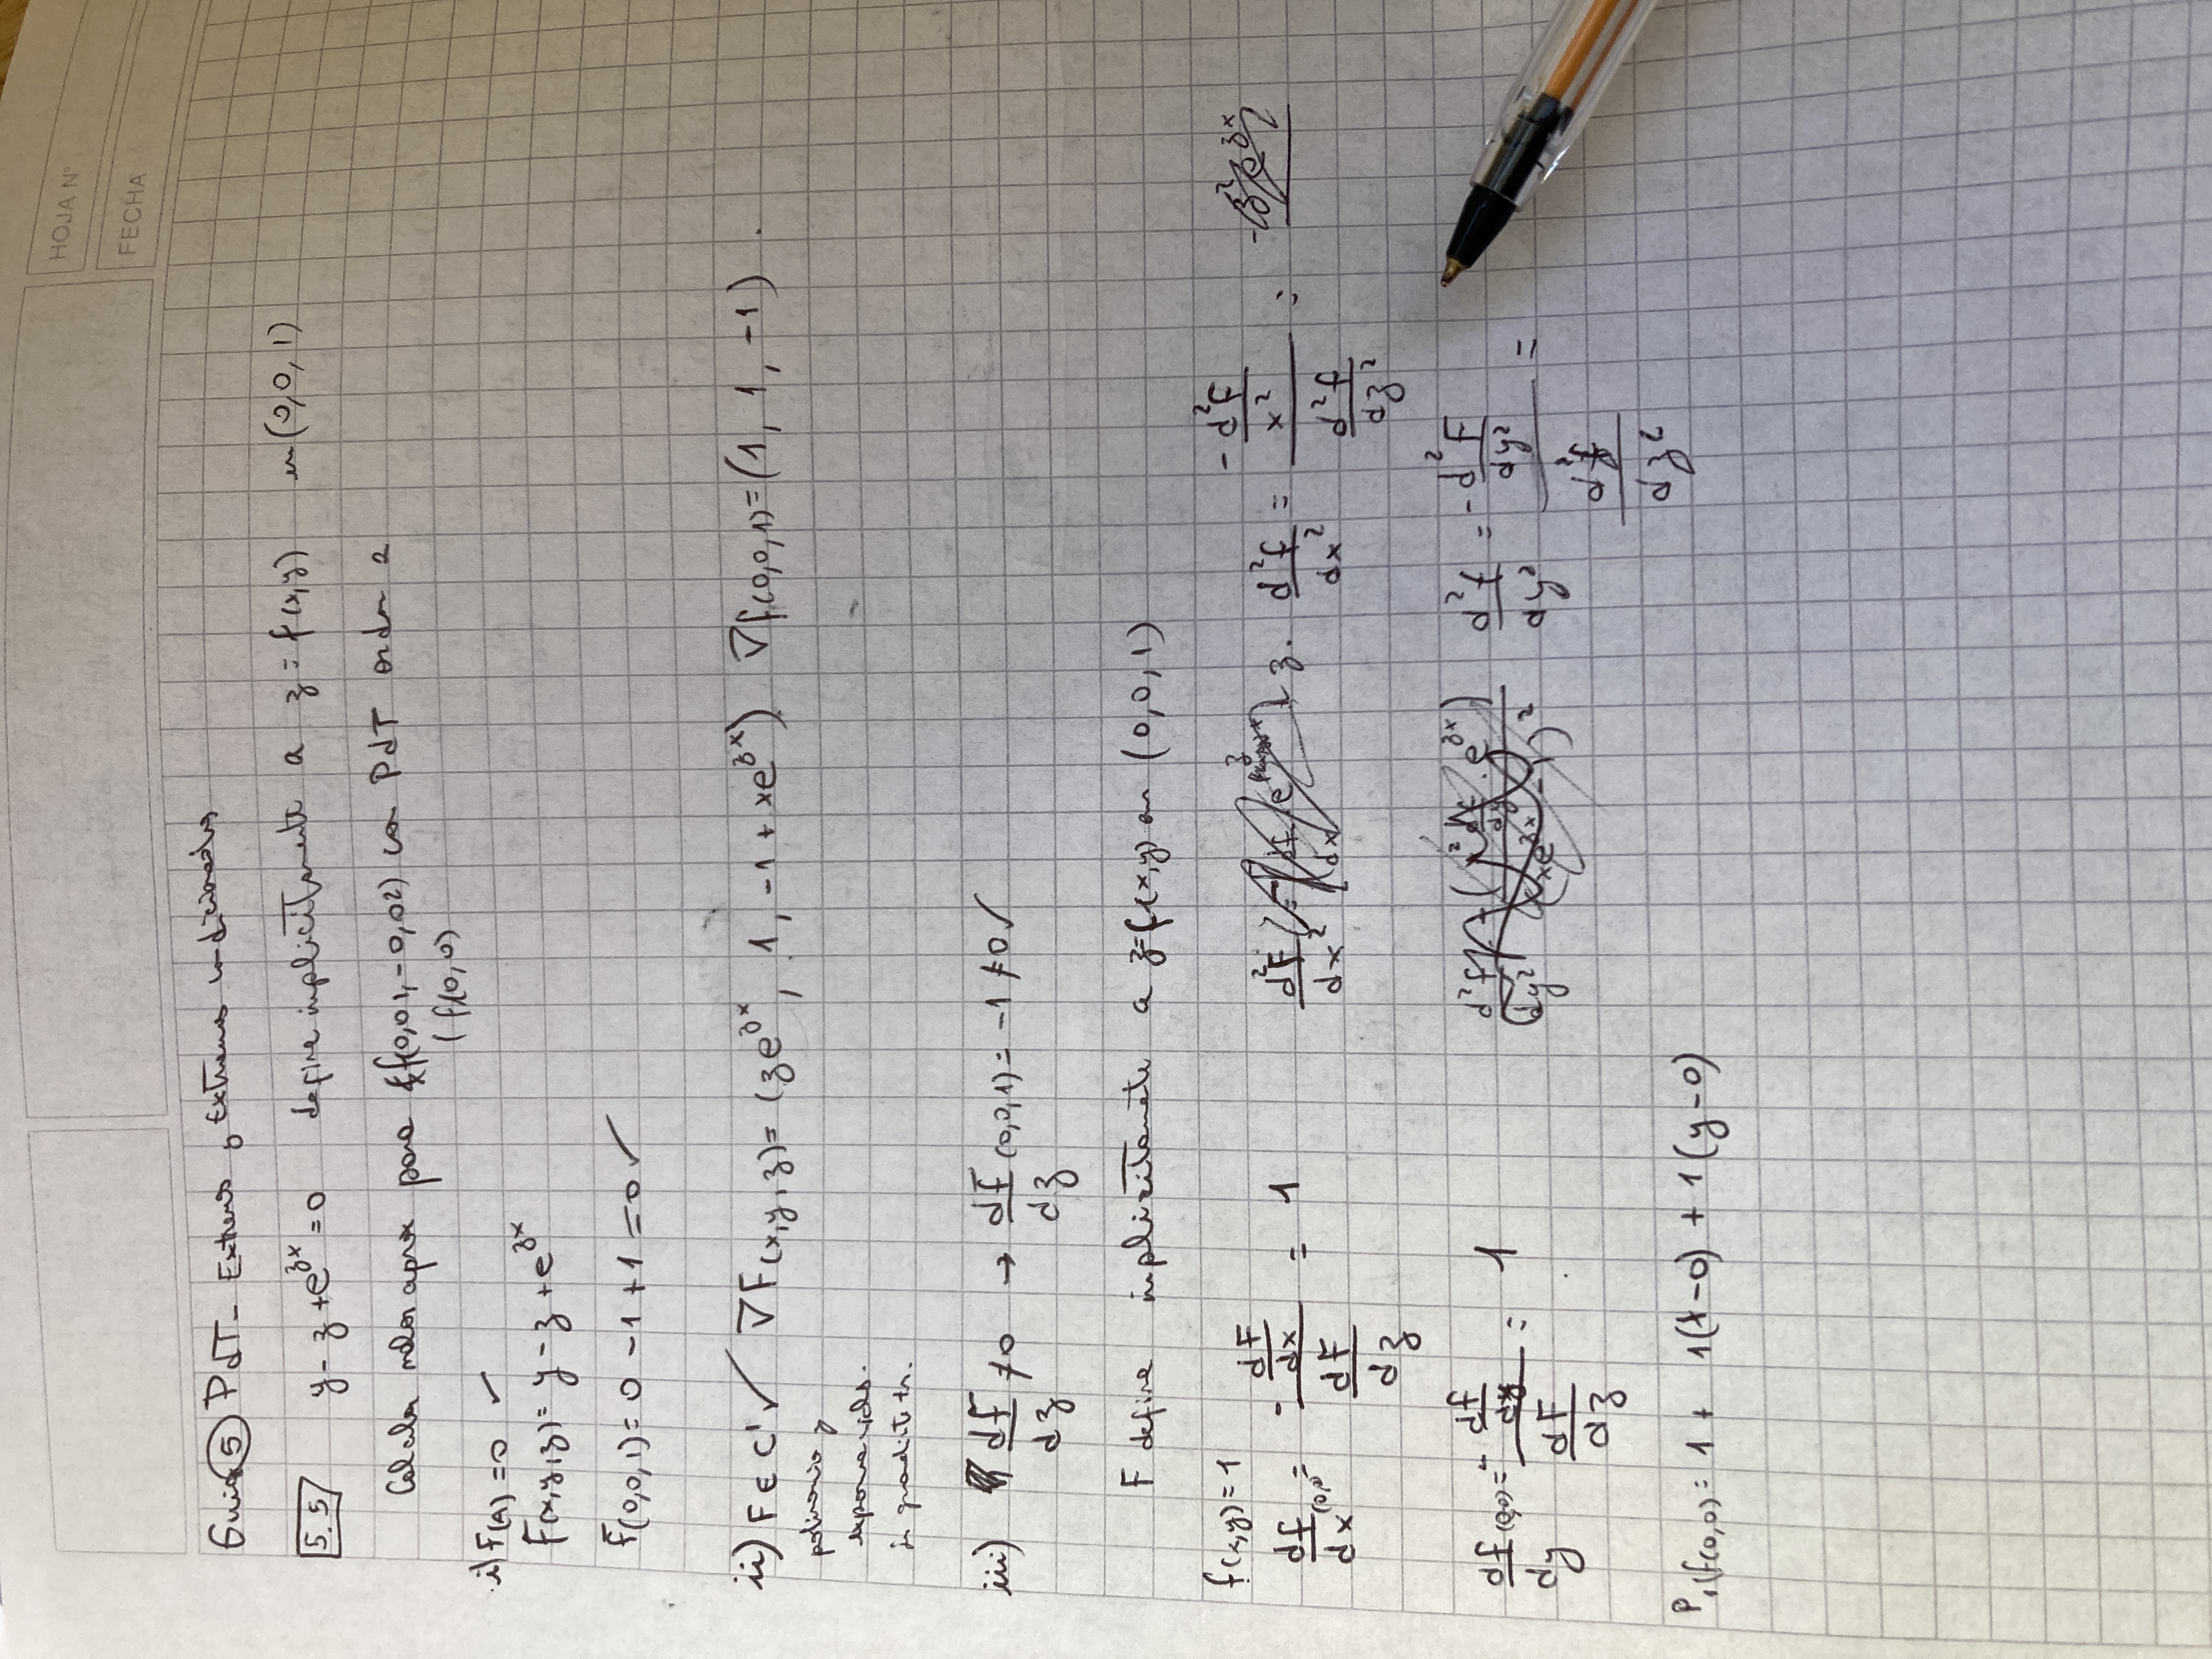 HOJA N°
FECHA
Guia 5 PdT - Extremos y Extremos condicionados
5.5 y - z + e^{zx} = 0 define implicitamente a z = f(x,y) en (0,0,1)
Calcular valor aprox para f(0,01,-0,02) con PdT orden 2
(f(0,0)
i) F(A) = 0 ✓
F(x,y,z) = y - z + e^{zx}
F(0,0,1) = 0 - 1 + 1 = 0 ✓
ii) F ∈ C¹ ✓ ∇F(x,y,z) = (z e^{zx}, 1, -1 + x e^{zx}) ∇f(0,0,1) = (1, 1, -1).
polinomio y
exponencial
iii) dF/dz ≠ 0 → dF/dz (0,0,1) = -1 ≠ 0 ✓
F define implicitamente a z = f(x,y) en (0,0,1)
f(x,y) = 1
df/dx (0,0) = - dF/dx / dF/dz = 1 d²F/dx² z. d²f/dx² = - d²F/x² / d²f/dz² =
df/dy (0,0) = - df/dy / dF/dz = 1 d²f/dy² d²f/dy² = - d²F/dy² / d²f/dz² =
P₁(f(0,0) = 1 + 1(x-0) + 1(y-0)